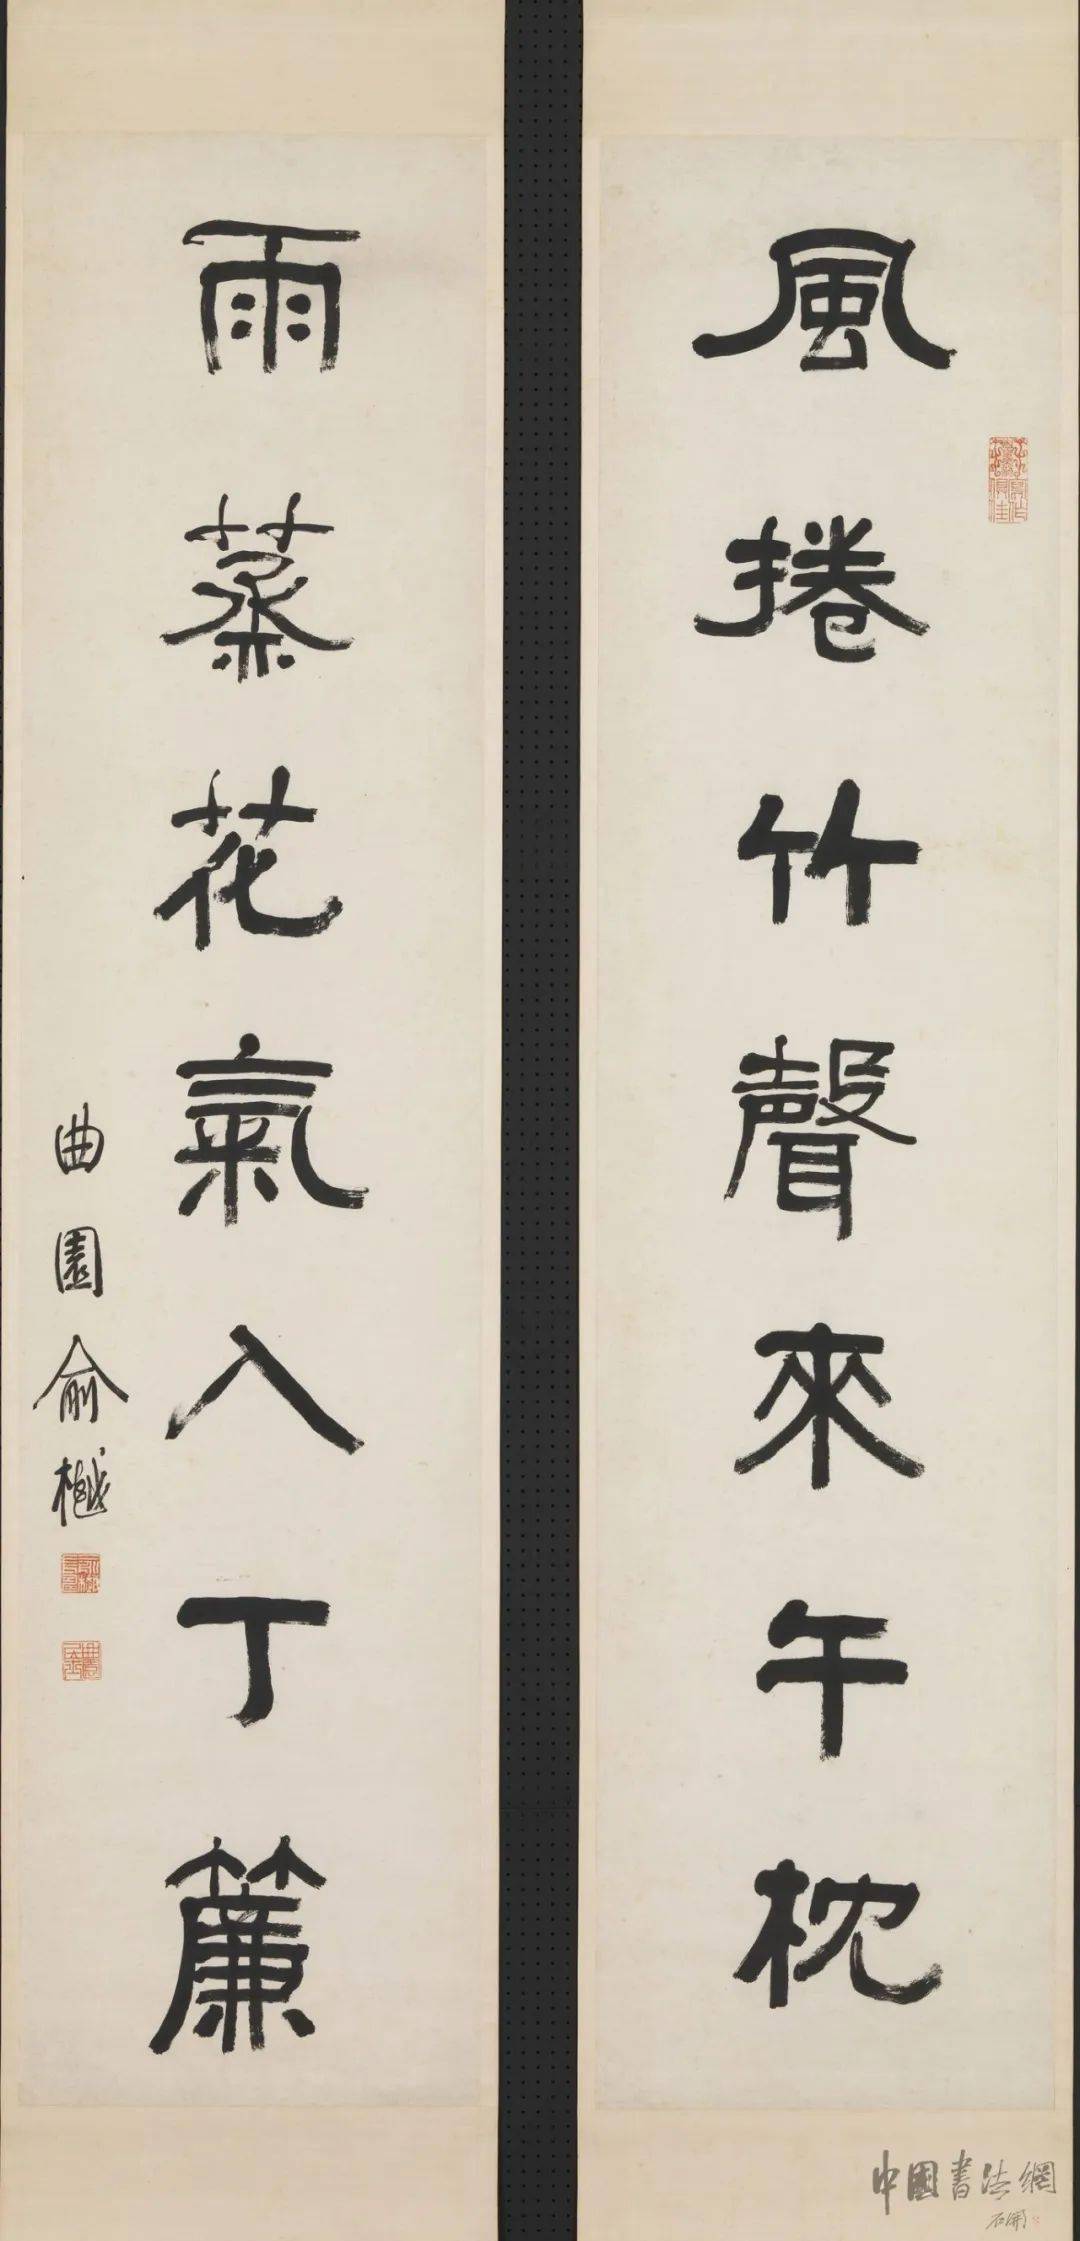 風捲竹聲來午枕
雨蒸花氣入丁簾
曲園俞樾
中國書法網